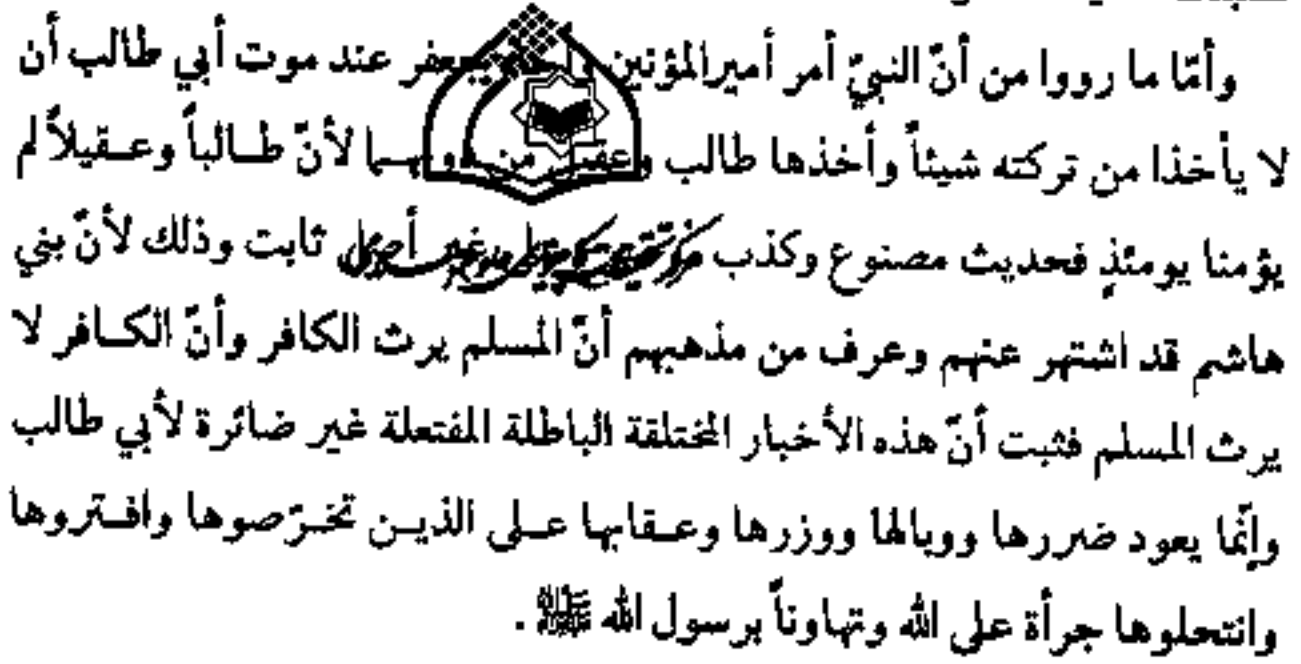 وأمّا ما رووا من أنّ النبيّ أمر أميرالمؤنين عند موت أبي طالب أن
لا يأخذا من تركته شيئاً وأخذها طالب لأنّ طـالباً وعـقيلاً لم
يؤمنا يومئذٍ فحديث مصنوع وكذب ثابت وذلك لأنّ بني
هاشم قد اشتهر عنهم وعرف من مذهبهم أنّ المسلم يرث الكافر وأنّ الكـافر لا
يرث المسلم فثبت أنّ هذه الأخبار المختلقة الباطلة المفتعلة غير ضائرة لأبي طالب
وإنّما يعود ضررها ووبالها ووزرها وعـقابها عـلى الذيـن تخـرّصوها وافـتروها
وانتحلوها جرأة على الله وتهاوناً برسول الله ﷺ .